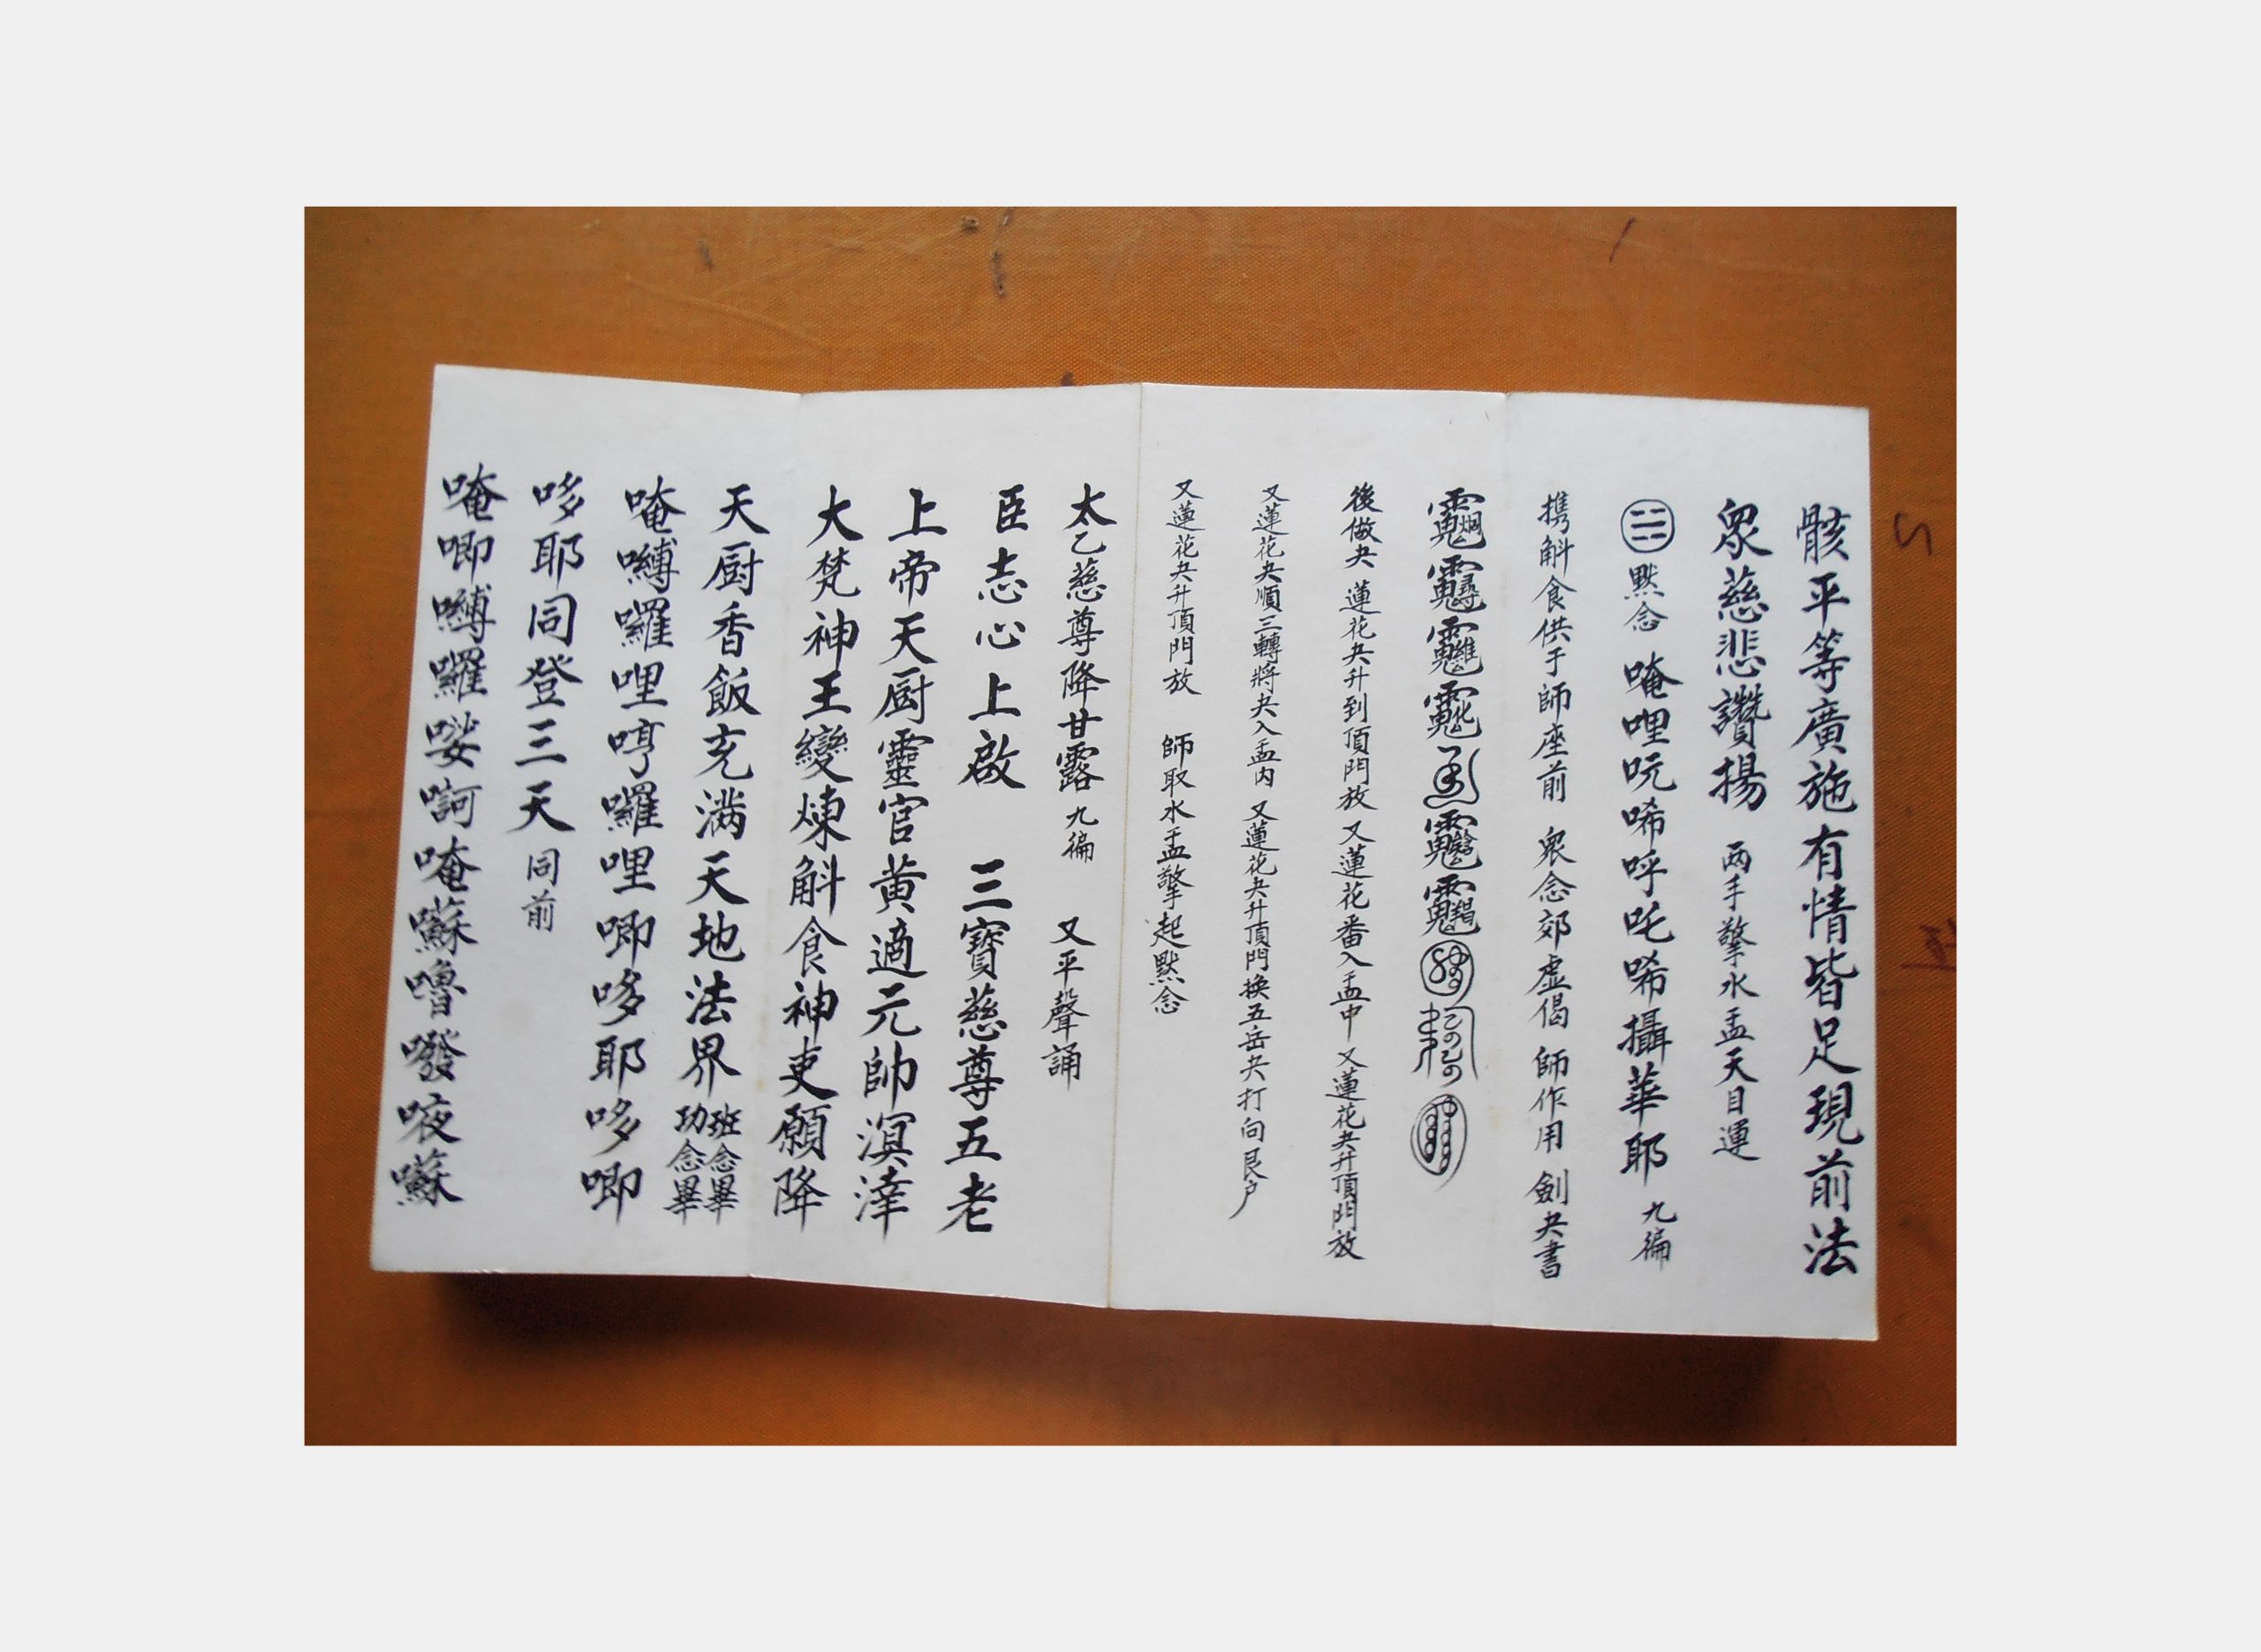 骸平等廣施有情皆足現前法
眾慈悲讚揚 两手擎水盂天目運
默念 唵哩呍唏呼吒唏攝華耶 九徧
携斛食供于師座前 眾念郊虛偈 師作用 劍夬書
後做夬 蓮花夬升到頂門放 又蓮花番入盂中 又蓮花夬升頂門放
又蓮花夬順三轉將夬入盂内 又蓮花夬升頂門换五岳夬打向艮户
又蓮花夬升頂門放 師取水盂擎起默念
太乙慈尊降甘露 九徧 又平聲誦
臣志心上啟 三寶慈尊五老
上帝天厨靈官黄適元帥溟涬
大梵神王變煉斛食神吏願降
天厨香飯充滿天地法界 班念畢 功念畢
唵嚩囉哩哼囉哩唧哆耶哆唧
哆耶同登三天 同前
唵唧嚩囉娑訶唵囌嚕噔㖡囌